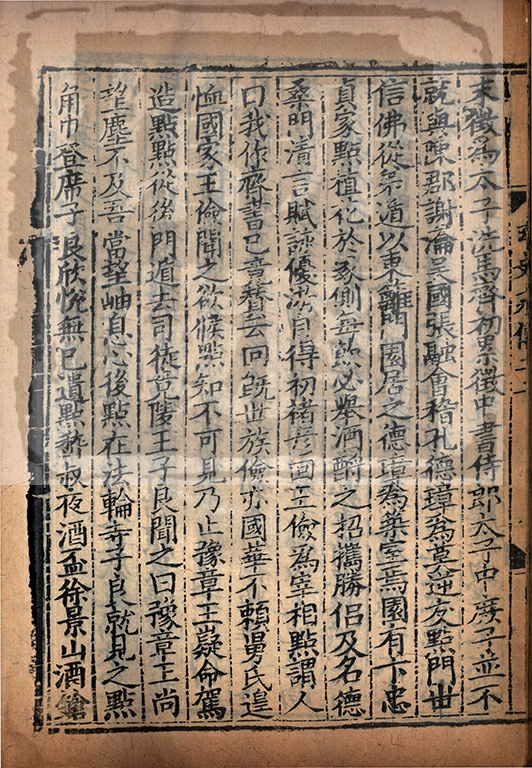 宋徵為太子洗馬齊初累徵中書侍郎太子中庶子並不
就與陳郡謝瀹吳國張融會稽孔德璋為莫逆友點門世
信佛從弟遁以東籬門園居之德璋為築室焉園有卞忠
貞冢點植花於冢側每飲必舉酒酹之招攜勝侶及名德
桑門清言賦詠優游自得初褚彥回王儉為宰相點謂人
曰我作齊書已竟贊云回既世族儉亦國華不賴舅氏遑
恤國家王儉聞之欲候點知不可見乃止豫章王嶷命駕
造點點從後門遁去司徒竟陵王子良聞之曰豫章王尚
望塵不及吾當望岫息心後點在法輪寺子良就見之點
角巾登席子良欣悅無已遺點嵇叔夜酒盃徐景山酒鎗